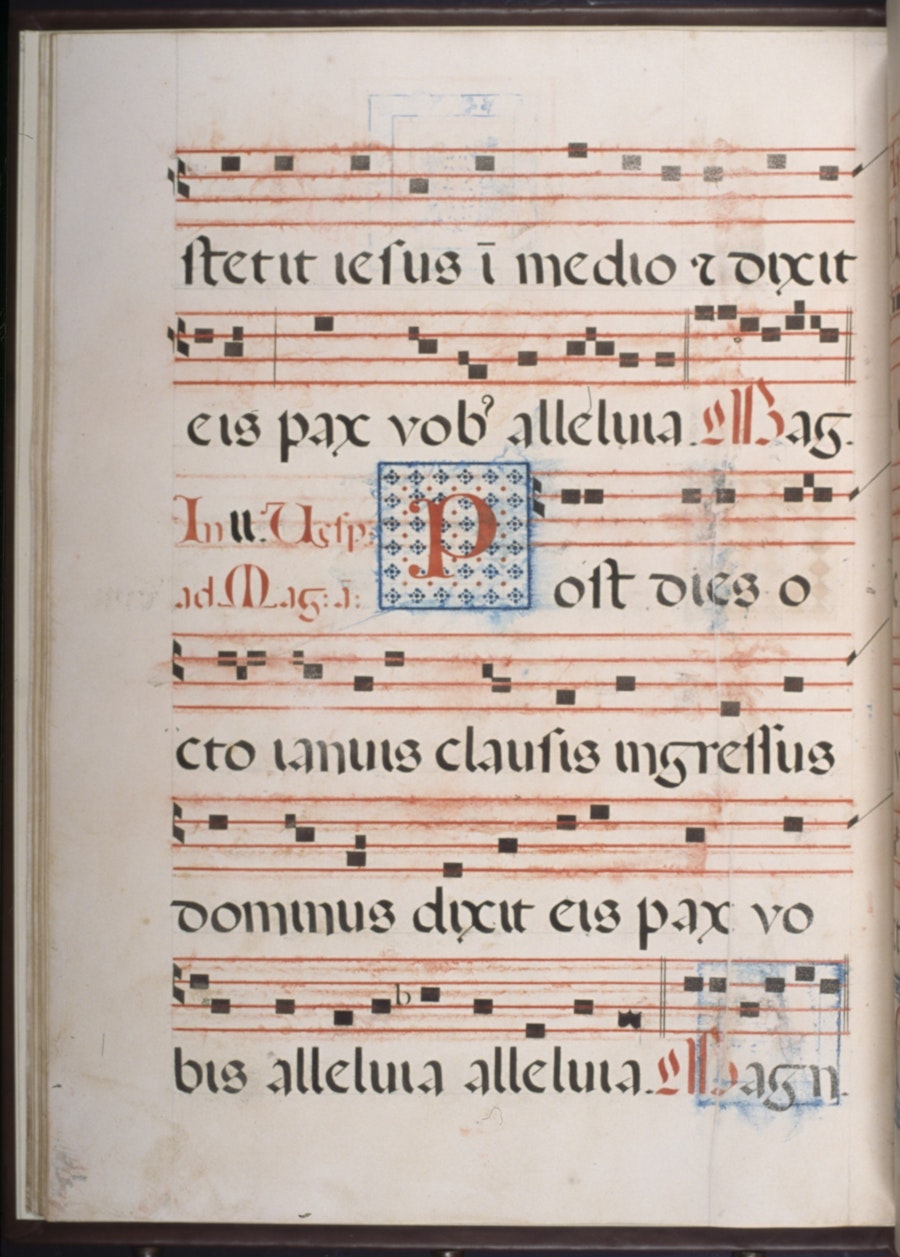 ſtetit ieſus ī medio ⁊ dixit
eis pax vobꝰ alleluia. Mag.
In ii. Veſp:
ad Mag: ā:
Poſt dies o
cto ianuis clauſis ingreſſus
dominus dixit eis pax vo
b
bis alleluia alleluia. Magn.